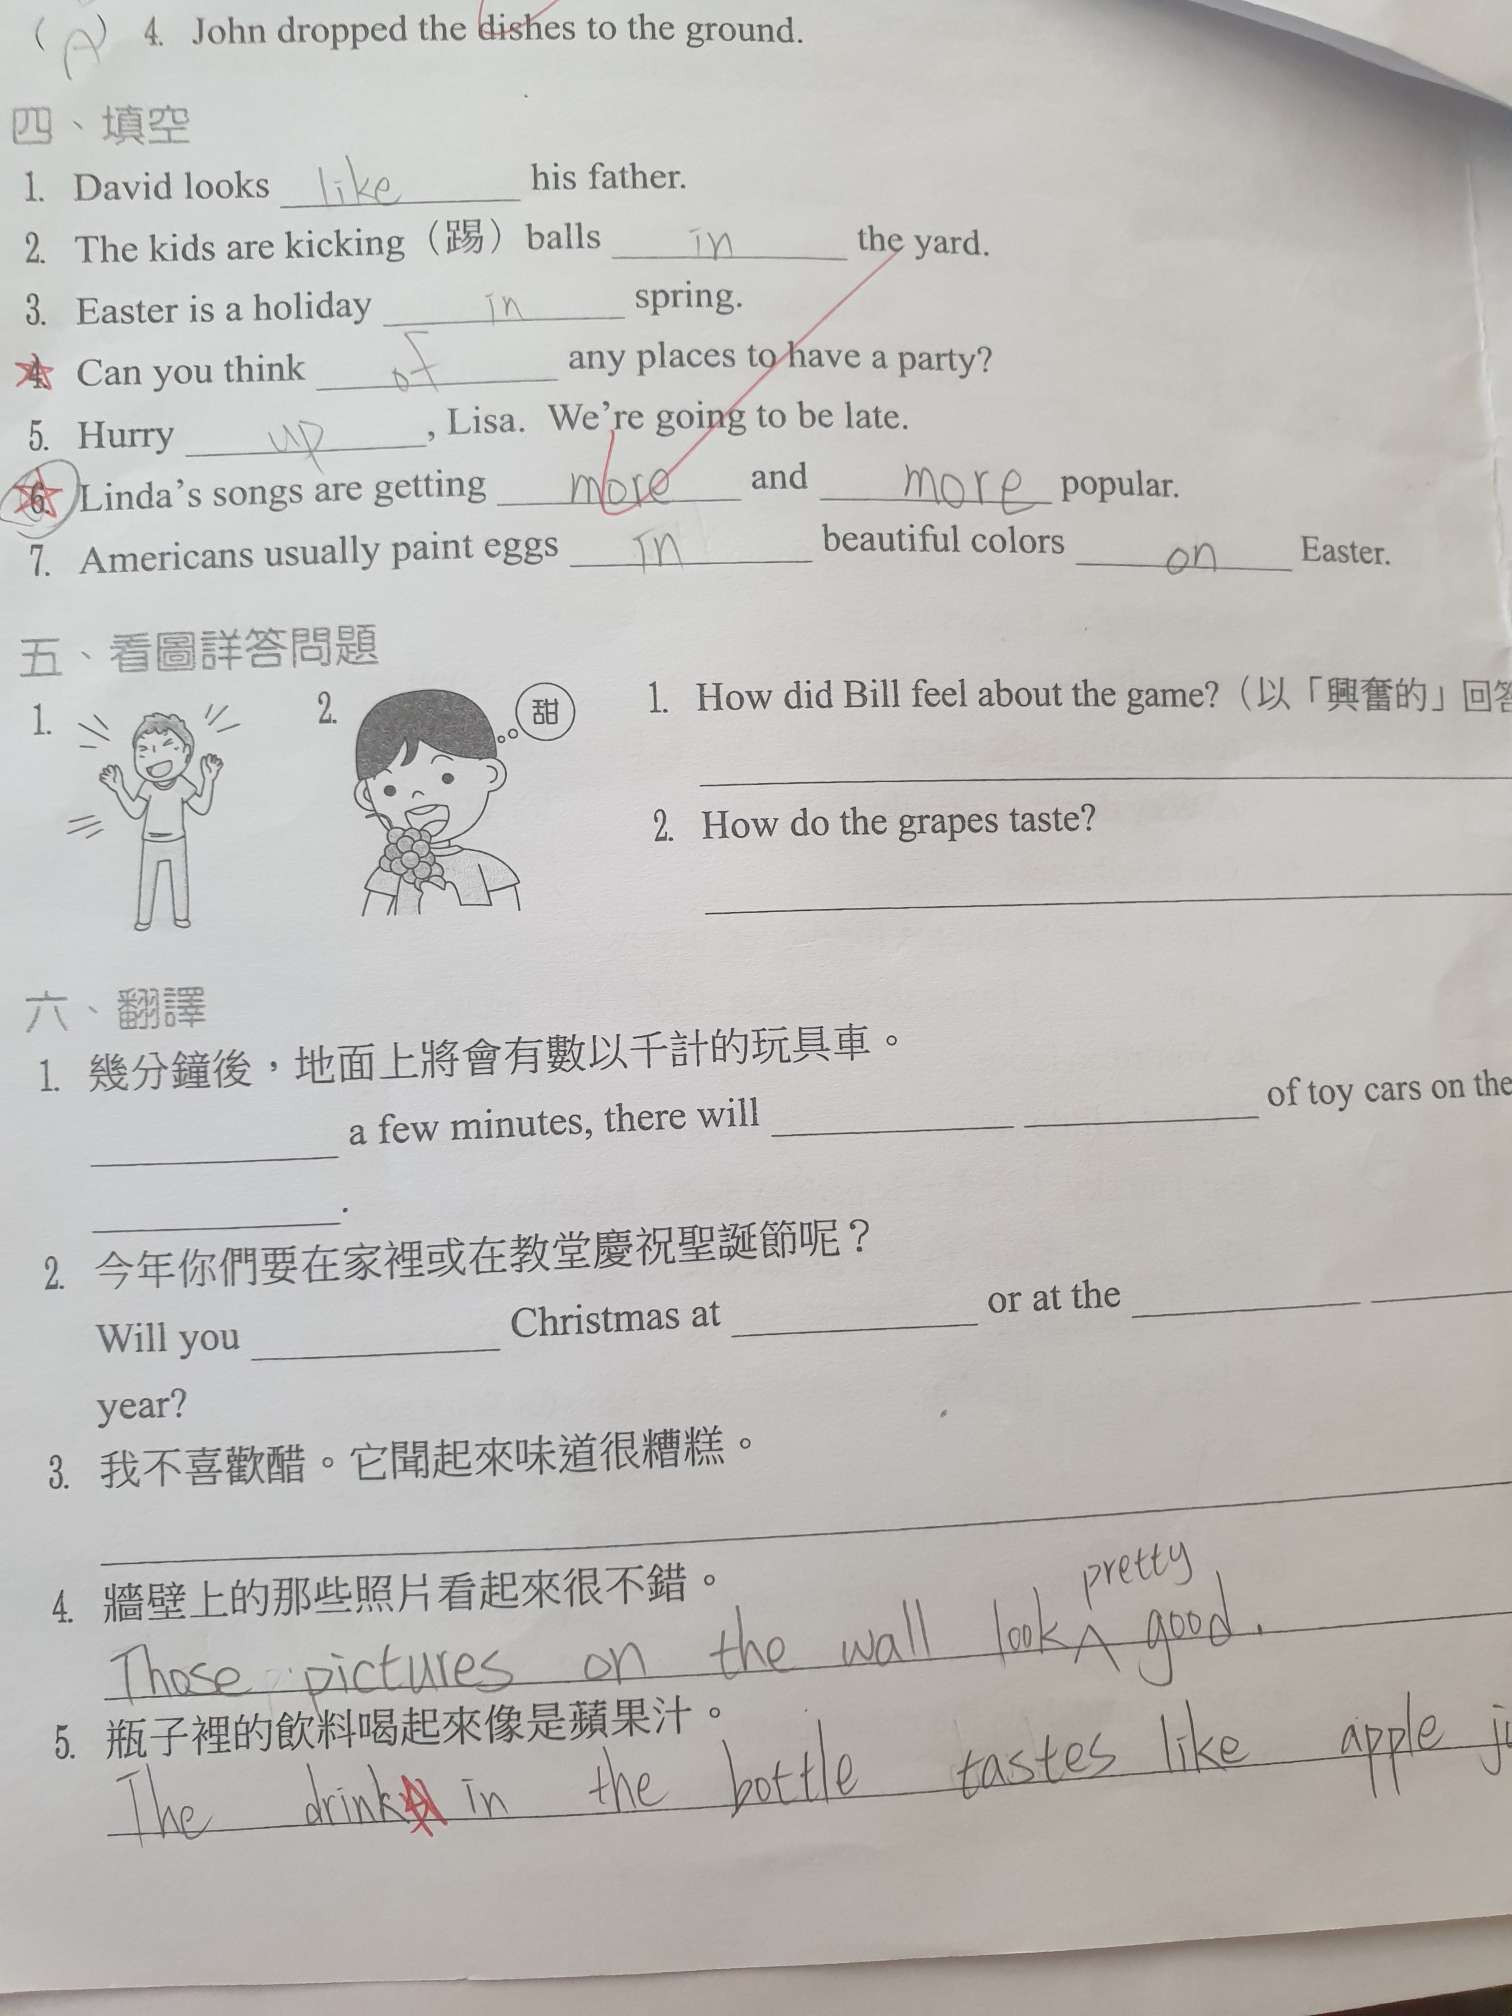 ( A ) 4. John dropped the dishes to the ground.
四、填空
1. David looks like his father.
2. The kids are kicking（踢）balls in the yard.
3. Easter is a holiday in spring.
4. Can you think of any places to have a party?
5. Hurry up, Lisa. We're going to be late.
6. Linda's songs are getting more and more popular.
7. Americans usually paint eggs in beautiful colors on Easter.
五、看圖詳答問題
1.
2.
甜
1. How did Bill feel about the game?（以「興奮的」回答
2. How do the grapes taste?
六、翻譯
1. 幾分鐘後，地面上將會有數以千計的玩具車。
a few minutes, there will of toy cars on the
.
2. 今年你們要在家裡或在教堂慶祝聖誕節呢？
Will you Christmas at or at the
year?
3. 我不喜歡醋。它聞起來味道很糟糕。
4. 牆壁上的那些照片看起來很不錯。
pretty
Those pictures on the wall look good.
5. 瓶子裡的飲料喝起來像是蘋果汁。
The drink in the bottle tastes like apple